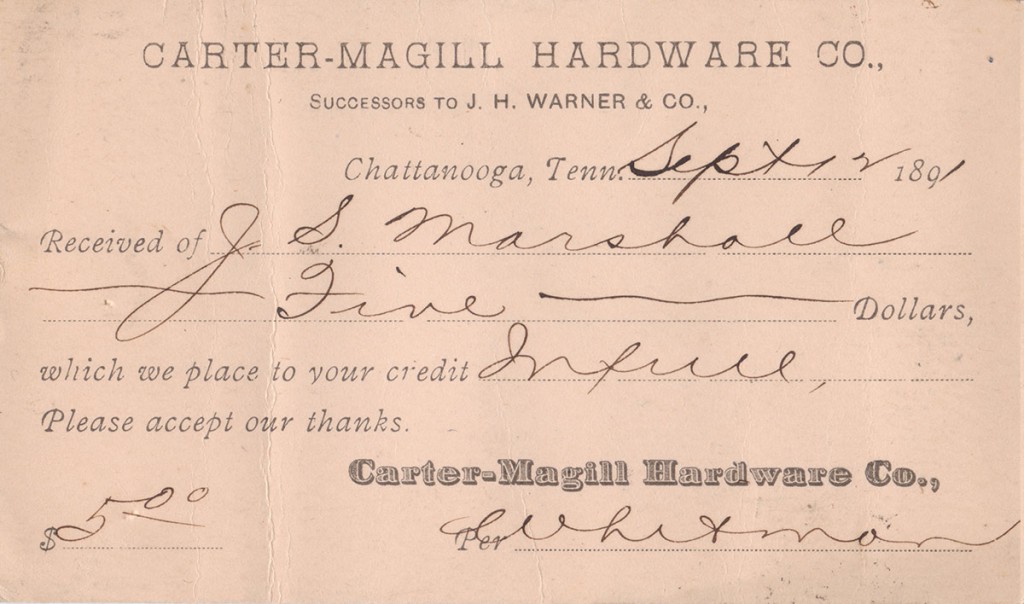 CARTER-MAGILL HARDWARE CO.,
SUCCESSORS TO J. H. WARNER & CO.,
Chattanooga, Tenn. Sept 12 1891
Received of J. S. Marshall
Five Dollars,
which we place to your credit In full,
Please accept our thanks.
Carter-Magill Hardware Co.,
$ 5.00 Per Whitman